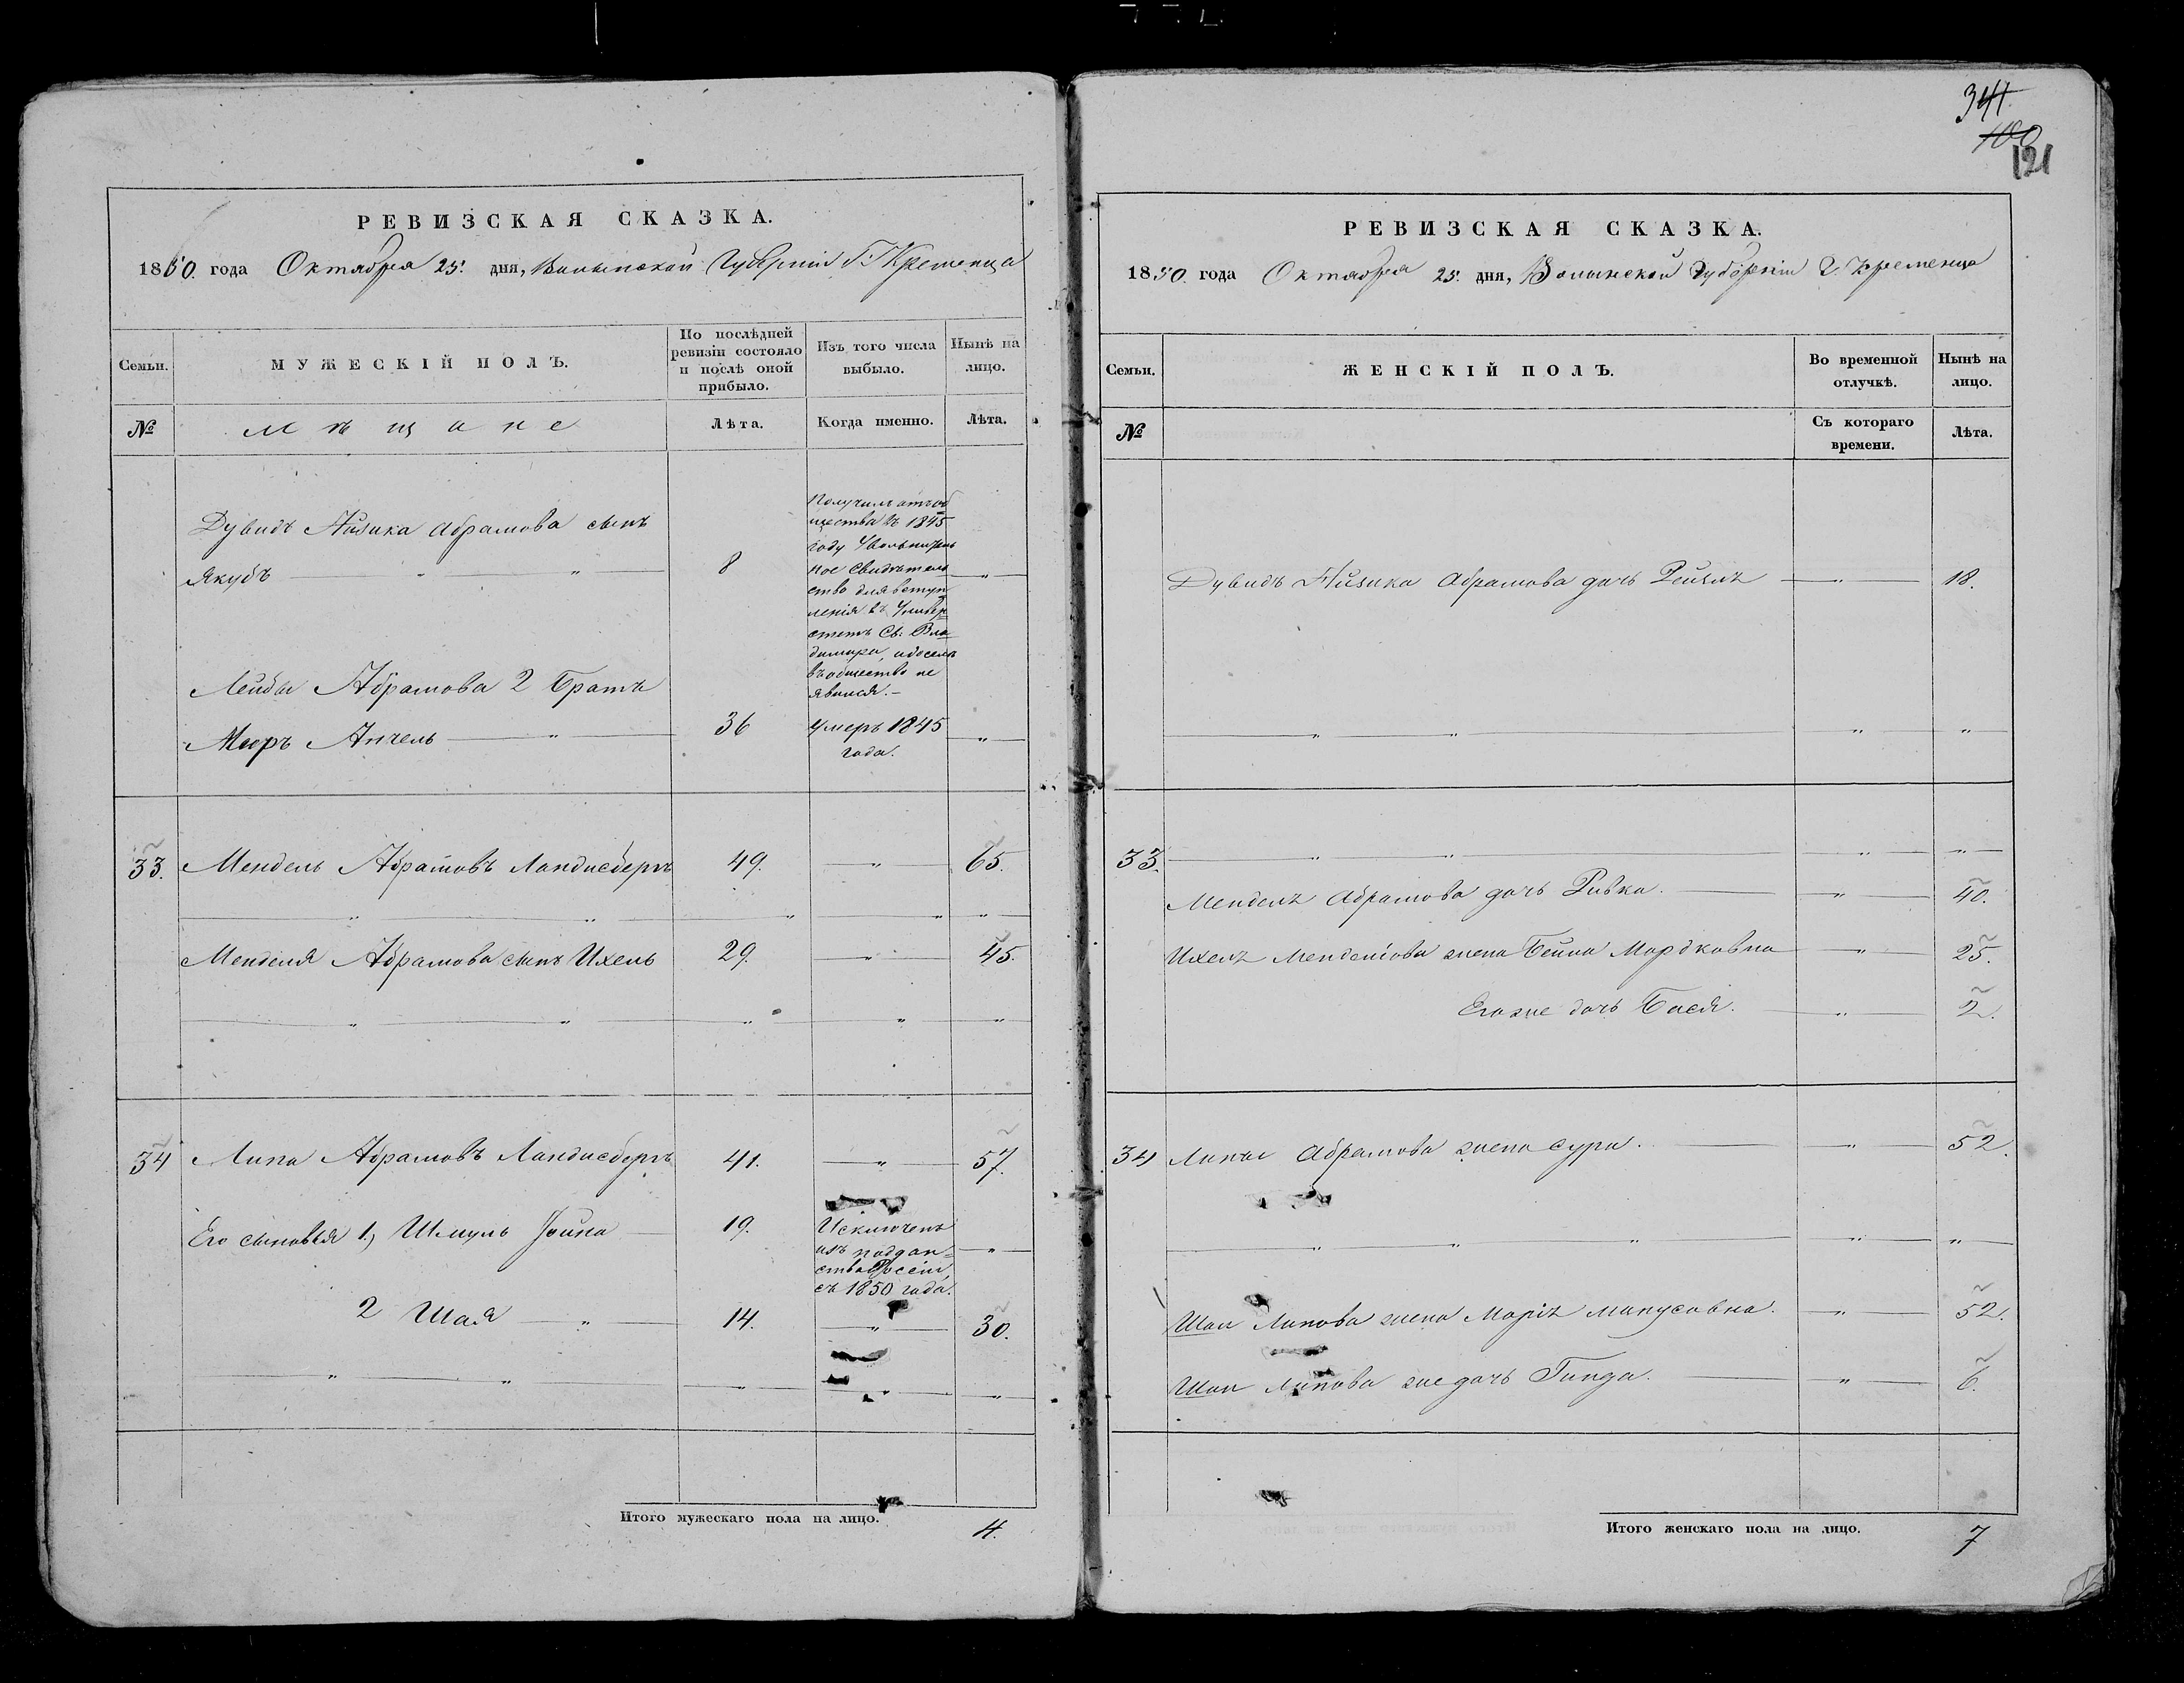 341.
100
121
РЕВИЗСКАЯ СКАЗКА.
1850. года Октября 25. дня, Волынской Губернiи Г. Кременца
Семьи.
МУЖЕСКIЙ ПОЛЪ.
По послѣдней ревизiи состояло и послѣ оной прибыло.
Изъ того числа выбыло.
Нынѣ на лицо.
№
Мѣщане
Лѣта.
Когда именно.
Лѣта.
Дувидъ Айзика Абрамова сынъ
Якубъ — " — " — 8 — " —
Получилъ отъ об
щества въ 1845
году Увольнитель
ное Свидѣтель
ство для вступ
ленiя въ Универ
ситетъ Св: Вла
димира, и доселѣ
въ общество не
явился. —
Лейбы Абрамова 2 Братъ
Меоръ Анчель — " — 36 Умеръ 1845 — " —
года.
33. Мендель Абрамовъ Ландисбергъ 49. — " — 65.
— " — " — " — " — " —
Менделя Абрамова сынъ Ихель 29. — " — 45.
— " — " — " — " — " —
34 Липа Абрамовъ Ландисбергъ 41. — " — 57.
Его сыновья 1., Шмуль Iойна — 19. Исключенъ
изъ поддан= — " —
ства Россiи,
съ 1850 года.
2 Шая — " — 14. — " — 30.
— " — " — " — " — " —
Итого мужескаго пола на лицо. 4.
РЕВИЗСКАЯ СКАЗКА.
1850. года Октября 25. дня, Волынской Губернiи Г. Кременца
Семьи.
ЖЕНСКIЙ ПОЛЪ.
Во временной отлучкѣ.
Нынѣ на лицо.
№
Съ котораго времени.
Лѣта.
Дувидъ Айзика Абрамова дочь Рейзлъ — " — 18.
— " — " — " — " —
33. — " — " — " — " —
Менделъ Абрамова дочь Ривка. — " — 40.
Ихелъ Менделiова жена Бейла Мордковна — " — 25.
Его же дочь Бася. — " — 2.
34 Липы Абрамова жена Сура. — " — 52.
— " — " — " — " — " —
Шаи Липова жена Марiя Манусовна. — " — 52.
Шаи Липова же дочь Гинда. — " — 6.
Итого женскаго пола на лицо. 7